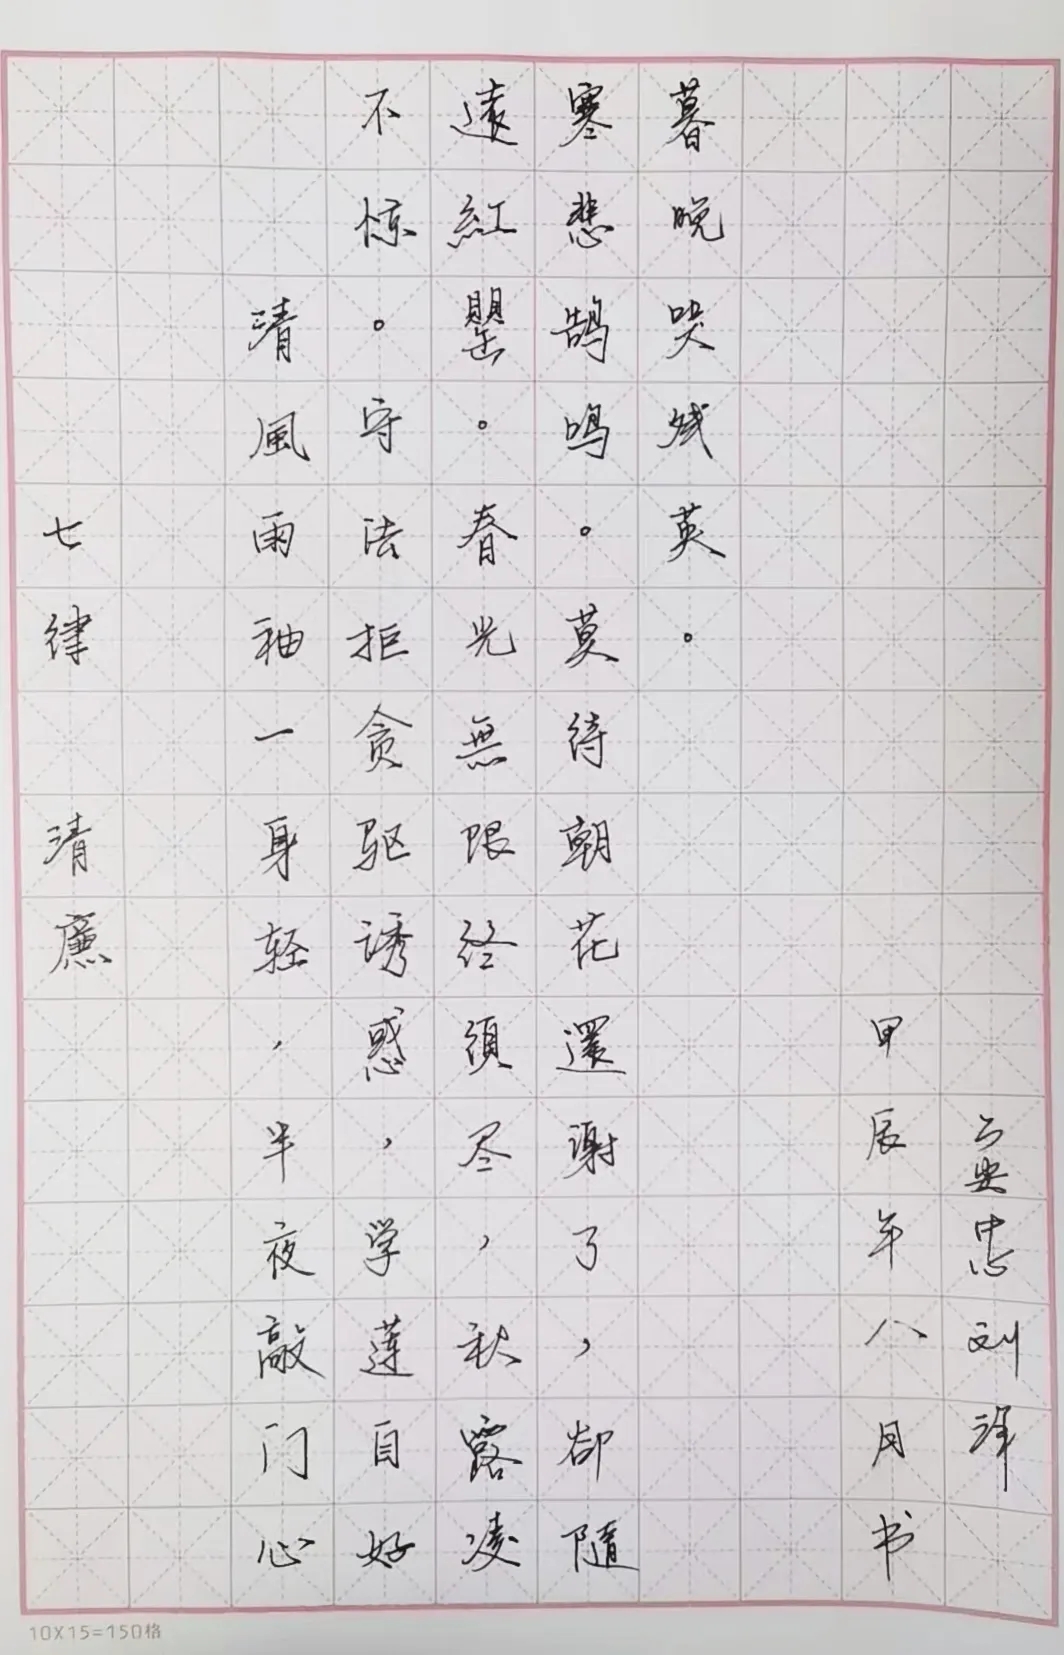 七律 清廉
清風雨袖一身轻，半夜敲门心
不惊。守法拒贪驱诱惑，学莲自好
遠紅罌。春光無限终須尽，秋露凌
寒悲鹄鸣。莫待朝花還谢了，却隨
暮晚哭残英。
甲辰年八月书
忠刘泽